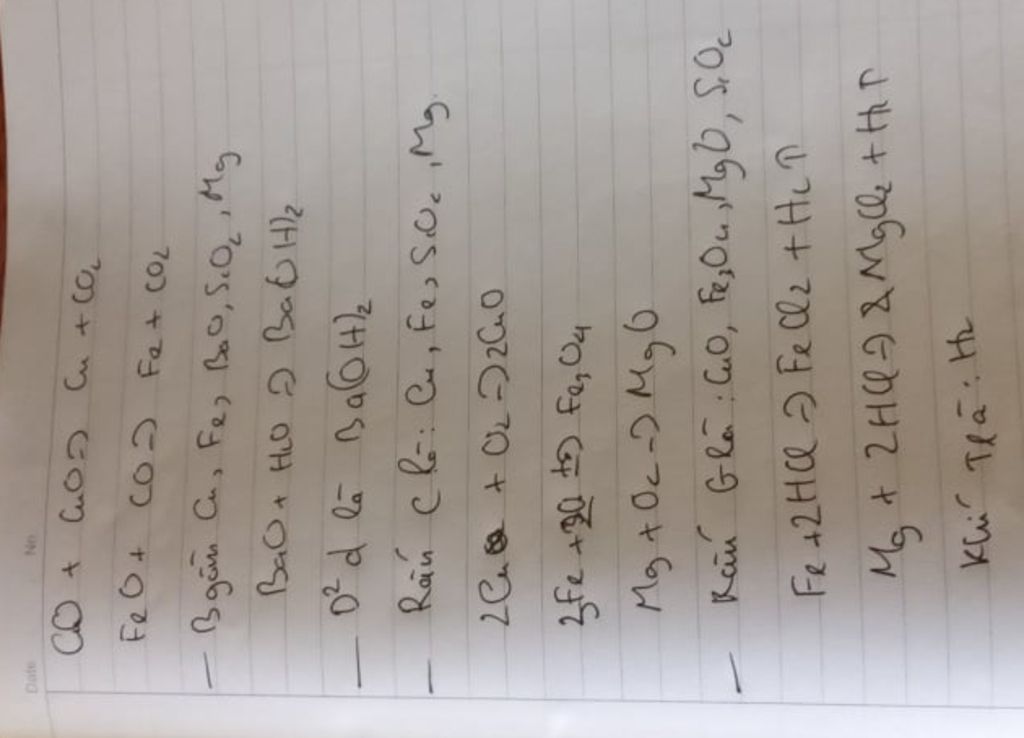 Date No
CO + CuO => Cu + CO2
FeO + CO => Fe + CO2
- B gồm Cu, Fe, BaO, SiO2, Mg
BaO + H2O => Ba(OH)2
- D2 d là Ba(OH)2
- Rắn C là: Cu, Fe, SiO2, Mg.
2Cu + O2 => 2CuO
3Fe + 2O2 => Fe3O4
Mg + O2 => MgO
- Rắn G là: CuO, Fe3O4, MgO, SiO2
Fe + 2HCl => FeCl2 + H2↑
Mg + 2HCl => MgCl2 + H2↑
Khí T là: H2